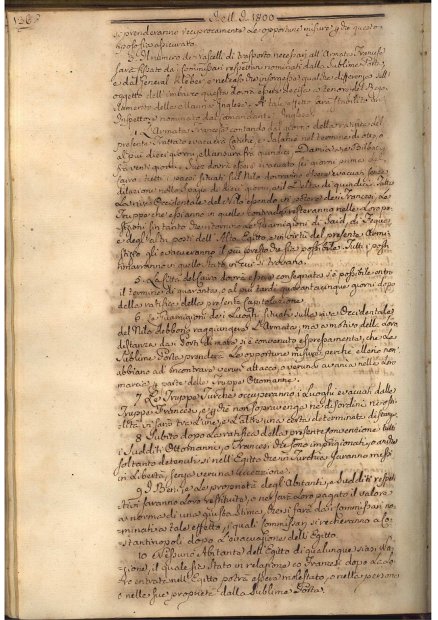 Dell' A. 1800
si prenderanno reciprocamente le opportune misure, onde questo
riposo sia assicurato.
3. Il numero de' Vascelli di trasporto necessari all'Armata Francese
sarà fissato da Commissari rispettivi nominati dalla Sublime Porta,
e dal General Kleber, e nel caso che insorgesse qualche differenza sull'
oggetto dell'imbarco questa dovrà essere decisa a tenore del Rego-
lamento della Marina Inglese. A tale effetto sarà stabilito un
Inspettore nominato dal Comandante Inglese.
4. L'Armata Francese contando dal giorno della ratifica del
presente Trattato evacuerà Catieh, e Salaieh nel termine di otto, o
al più dieci giorni, Mansura fra quindici, Damiata, e Belbeys
fra venti giorni. Suez dovrà essere evacuato sei giorni prima del
Cairo. Tutti i paesi situati sul Nilo dovranno essere evacuati senza
dilazione nello spazio di dieci giorni, ed il Delta di quindici. Tutta
la riva Occidentale del Nilo essendo in potere dei Francesi, le
Truppe che esistono in quelle contrade resteranno nelle loro po-
sizioni fin tanto che intorno le Guarnigioni di Said, di
e degl'altri posti dell'Alto Egitto, e in virtù del presente Armi-
stizio gli evacueranno il più presto che sia possibile. Tutti i posti
5. La Città del Cairo dovrà essere consegnata s'è possibile entro
il termine di quaranta, o al più tardi quarantacinque giorni dopo
della ratifica della presente Capitolazione.
6. Le Guarnigioni dei Luoghi situati sulla riva Occidentale
del Nilo debbono raggiungere l'Armata, ma a motivo della loro
distanza dai Porti di mare si è convenuto espressamente, che la
Sublime Porta prenderà le opportune misure, perchè elleno non
abbiano ad incontrare verun attacco, o verun danno nella loro
marcia a parte delle Truppe Ottomanne.
7. Le Truppe Turche occuperanno i Luoghi evacuati dalle
Truppe Francesi, e onde non sopravenga nè disordine, nè osti-
lità, vi sarà tra l'une, e l'altre una certa determinata distanza.
8. Subito dopo la ratifica della presente convenzione tutti
i Sudditi Ottomanni, o Francesi che sono imprigionati, o anche
soltanto detenuti sì nell'Egitto che in Turchia saranno messi
in Libertà, senza veruna eccezione.
9. I Beni, e le proprietà degli Abitanti, e Sudditi rispet-
tivi saranno loro restituite, o ne sarà loro pagato il valore
a norma di una giusta stima, che si farà dai Commissari no-
minati a tale effetto, i quali Commissari si recheranno a Co-
stantinopoli dopo l'evacuazione dell'Egitto.
10. Nissuno Abitante dell'Egitto di qualunque siasi Na-
zione, il quale sia stato in relazione co' Francesi dopo la lo-
ro entrata nell'Egitto potrà essere molestato, o nella persona
o nelle sue proprietà dalla Sublime Porta.